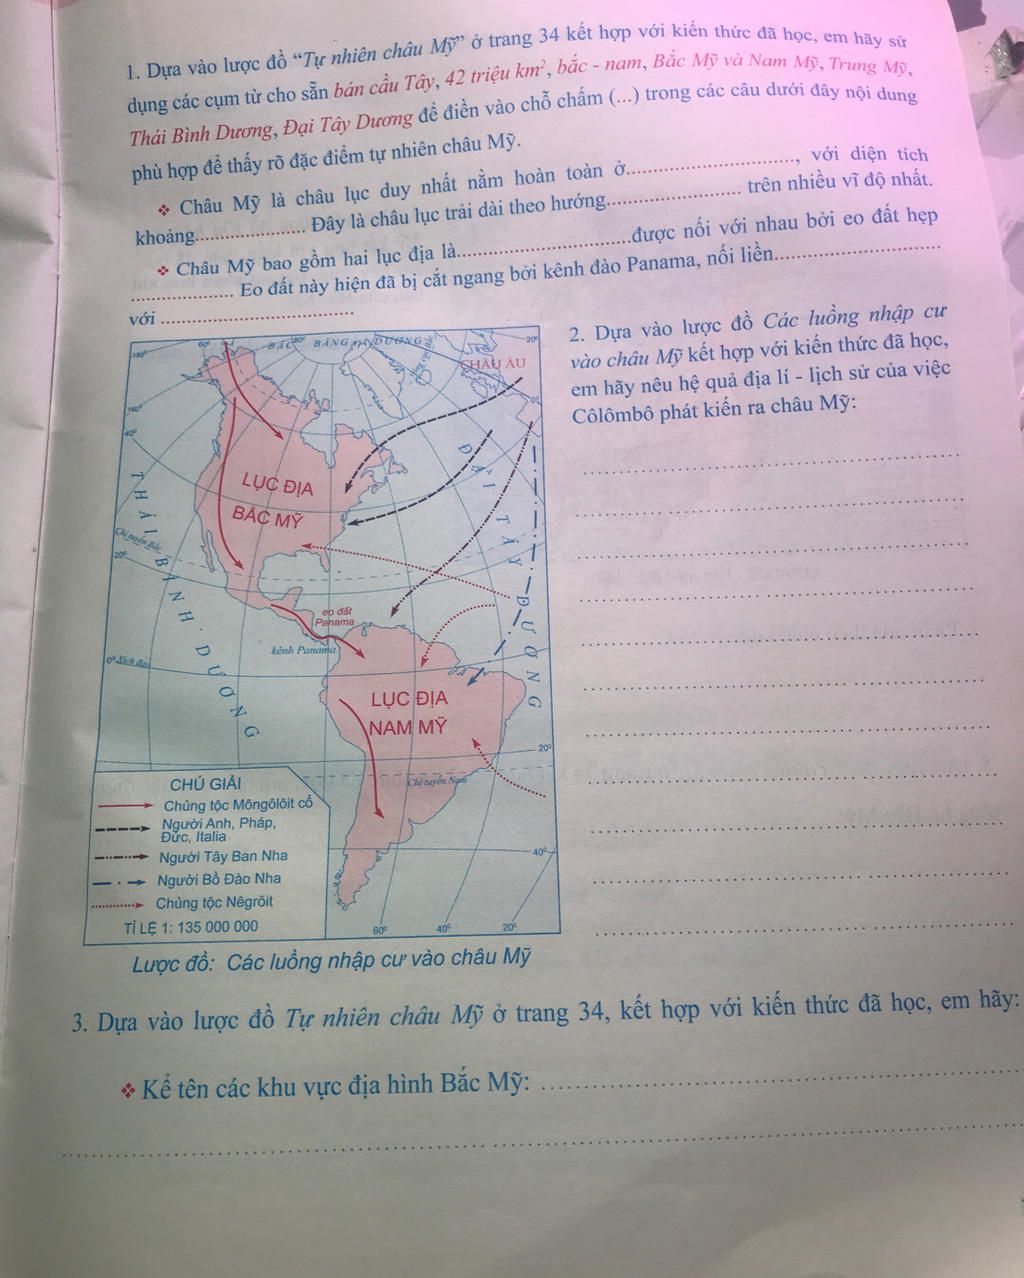 1. Dựa vào lược đồ “Tự nhiên châu Mỹ” ở trang 34 kết hợp với kiến thức đã học, em hãy sử
dụng các cụm từ cho sẵn bán cầu Tây, 42 triệu km², bắc - nam, Bắc Mỹ và Nam Mỹ, Trung Mỹ,
Thái Bình Dương, Đại Tây Dương để điền vào chỗ chấm (...) trong các câu dưới đây nội dung
phù hợp để thấy rõ đặc điểm tự nhiên châu Mỹ.
❖ Châu Mỹ là châu lục duy nhất nằm hoàn toàn ở..............................., với diện tích
khoảng.................... Đây là châu lục trải dài theo hướng........................ trên nhiều vĩ độ nhất.
❖ Châu Mỹ bao gồm hai lục địa là...............................được nối với nhau bởi eo đất hẹp
................... Eo đất này hiện đã bị cắt ngang bởi kênh đào Panama, nối liền..............................
với ...................................
2. Dựa vào lược đồ Các luồng nhập cư
vào châu Mỹ kết hợp với kiến thức đã học,
em hãy nêu hệ quả địa lí - lịch sử của việc
Côlômbô phát kiến ra châu Mỹ:
BẮC BĂNG DƯƠNG
180°
60°
80°
20°
CHÂU ÂU
0°
160°
40°
ĐẠI TÂY DƯƠNG
THÁI BÌNH DƯƠNG
LỤC ĐỊA
BẮC MỸ
Chí tuyến Bắc
20°
eo đất
Panama
kênh Panama
0° Xích đạo
LỤC ĐỊA
NAM MỸ
20°
Chí tuyến Nam
40°
60°
40°
20°
CHÚ GIẢI
Chủng tộc Môngôlôit cổ
Người Anh, Pháp,
Đức, Italia
Người Tây Ban Nha
Người Bồ Đào Nha
Chủng tộc Nêgrôit
TỈ LỆ 1: 135 000 000
Lược đồ: Các luồng nhập cư vào châu Mỹ
3. Dựa vào lược đồ Tự nhiên châu Mỹ ở trang 34, kết hợp với kiến thức đã học, em hãy:
❖ Kể tên các khu vực địa hình Bắc Mỹ: